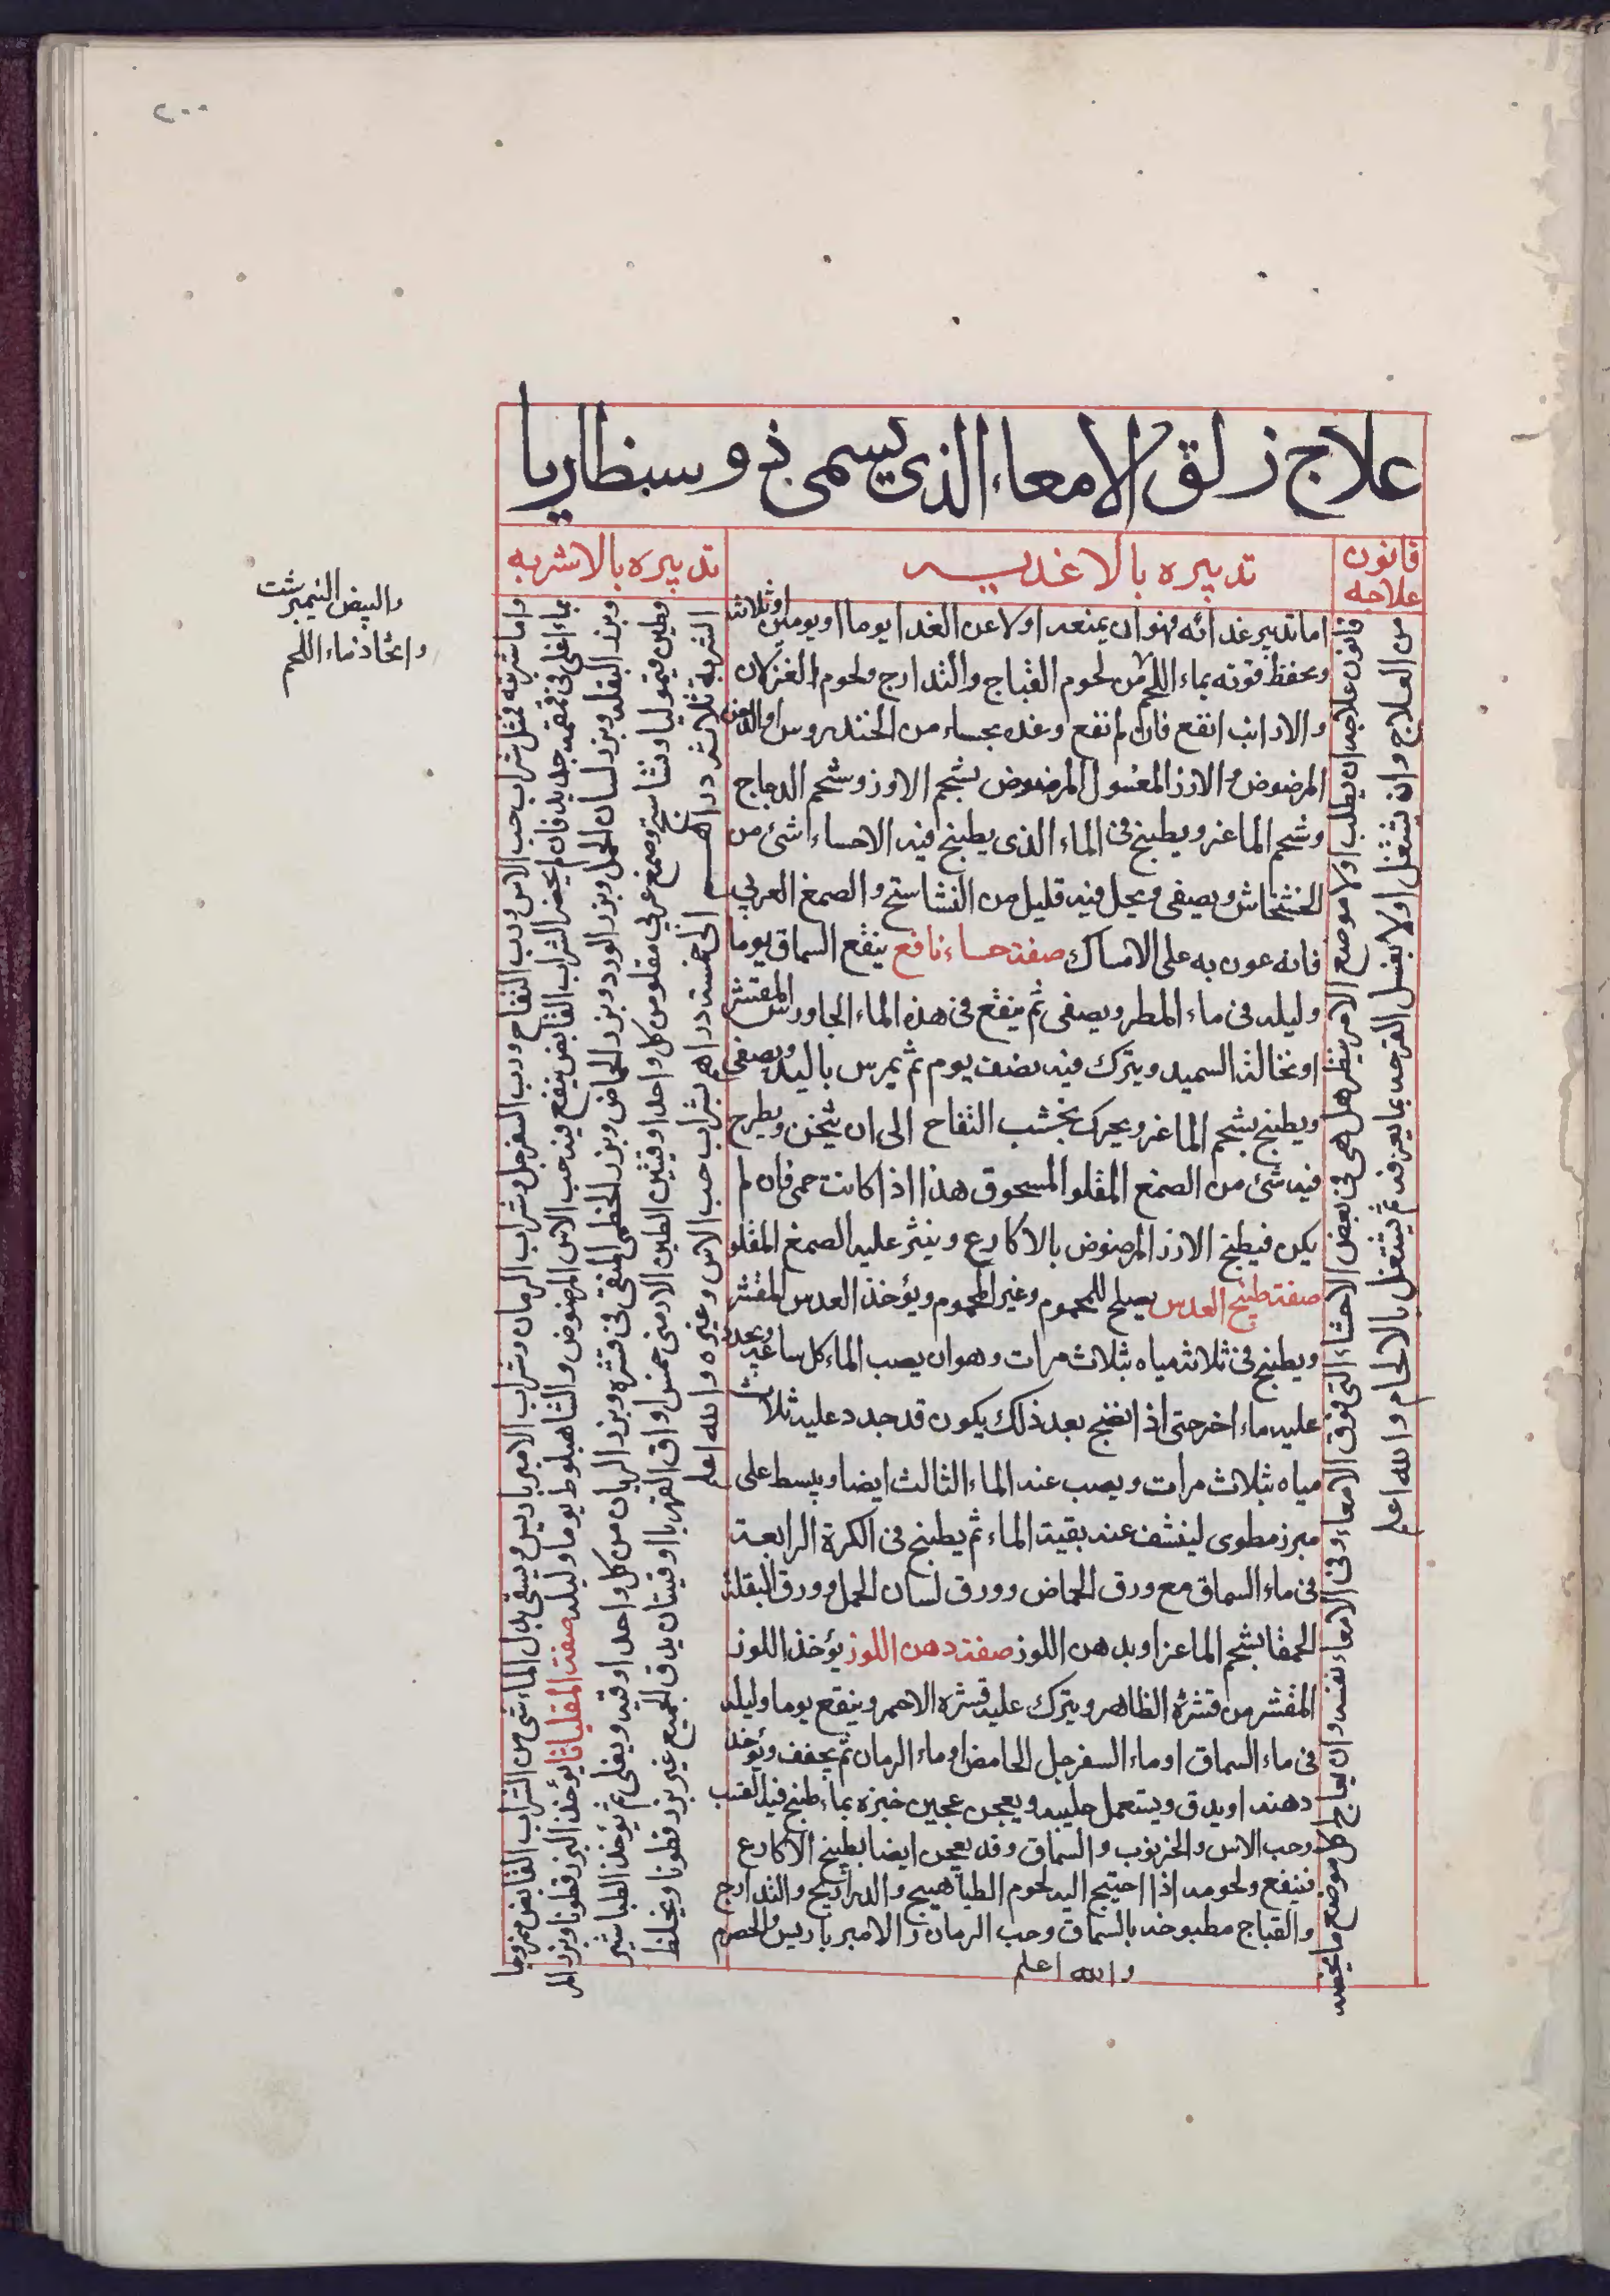 ٢٠٠
علاج زلق الامعاء الذي يسمى ذوسنطاريا
قانون علاجه
تدبيره بالاغذيه
تدبيره بالاشربه
قانون علاجه ان يطلب اولا موضع الامر ينظر هل هي في بعض الاحشاء التي فوق الامعاء وفي الامعاء نفسه وان يعالج كل موضع ما يخصه
من العلاج وان يشتغل اولا بغسل القرحه بما يعرفه ثم يشتغل بالالحام والله اعلم
اما تدبير غدائه فهو ان يمنعه اولا عن الغدا يوما او يومين او ثلاثه
ويحفظ قوته بماء اللحم من لحوم القباج والتدارج ولحوم الغزلان
والارانب انفع فان لم تقع وغده بحساء من الخندروس او الدخن
المرضوض والارز المغسول المرضوض بشحم الاوز وشحم الدجاج
وشحم الماعز ويطبخ في الماء الذي يطبخ فيه الاحساء شئ من
الخشخاش ويصفى ويحل فيه قليل من النشاستج والصمغ العربي
فانه عون به على الامساك صفة حساء نافع ينقع السماق يوما
وليله في ماء المطر ويصفى ثم ينقع في هذه الماء الجاورس المقشر
او نخالة السميد ويترك فيه نصف يوم ثم يمرس باليد ويصفى
ويطبخ بشحم الماعز ويحرك بخشب التفاح الى ان يثخن ويطرح
فيه شئ من الصمغ المقلو المسحوق هذا اذا كانت حمى فان لم
يكن فيطبخ الارز المرضوض بالاكارع وينثر عليه الصمغ المقلو
صفة طبيخ العدس يصلح للمحموم وغير المحموم ويؤخذ العدس المقشر
ويطبخ في ثلاثه مياه بثلاث مرات وهو ان يصب الماء كل ساعه ويجدد
عليه ماء اخر حتى اذا نضج بعد ذلك يكون قد جدد عليه ثلاث
مياه بثلاث مرات ويصب عنه الماء الثالث ايضا ويبسط على
مبرز مطوى لينشف عنه بقية الماء ثم يطبخ في الكرة الرابعة
في ماء السماق مع ورق الحماض وورق لسان الحمل وورق البقلة
الحمقا بشحم الماعز او بدهن اللوز صفة دهن اللوز يؤخذ اللوز
المقشر من قشره الظاهر ويترك عليه قشره الاحمر وينقع يوما وليله
في ماء السماق او ماء السفرجل الحامض او ماء الرمان ثم يجفف ويؤخذ
دهنه او يدق ويستعمل حليبه ويعجن عجين خبزه بماء طبخ فيه القسب
وحب الاس والخرنوب والسماق وقد يعجن ايضا بطبيخ الاكارع
فينفع ولحومه اذا احتيج اليه لحوم الطياهيج والدراريج والتدارج
والقباج مطبوخه بالسماق وحب الرمان والامبرباريس والحصرم
والله اعلم
واما شربه فمثل شراب حب الاس ورب التفاح ورب السفرجل وشراب الرمان وشراب الامبرباريس ويسقى بدل الماء شئ من الشراب القابض ممزوجا
بماء اغلي في قمقمه حديد فان لم يحضر الشراب القابض ينقع فيه حب الاس المرضوض والشاهبلوط يوما وليله صفة المقلياثا يؤخذ البزرقطونا وبزر المر
وبزر البقله وبزر لسان الحمل وبزر الورد وبزر الحماض وبزر الخطمي المنقى في قشره وبزر الريان من كل واحد اوقيه ويغلى ثم يؤخذ الطباشير
وطين قيموليا ونشاستج وصمغ عربي مقلو من كل واحد اوقيتين الطين الارمني خمس اواق القهربا اوقيتان يدق الجميع غير بزر قطونا ويخلط
الشربه ثلاثه دراهم الى خمسة دراهم بشراب حب الاس وغيره والله اعلم
والبيض النيمبرشت
واتخاذ ماء اللحم